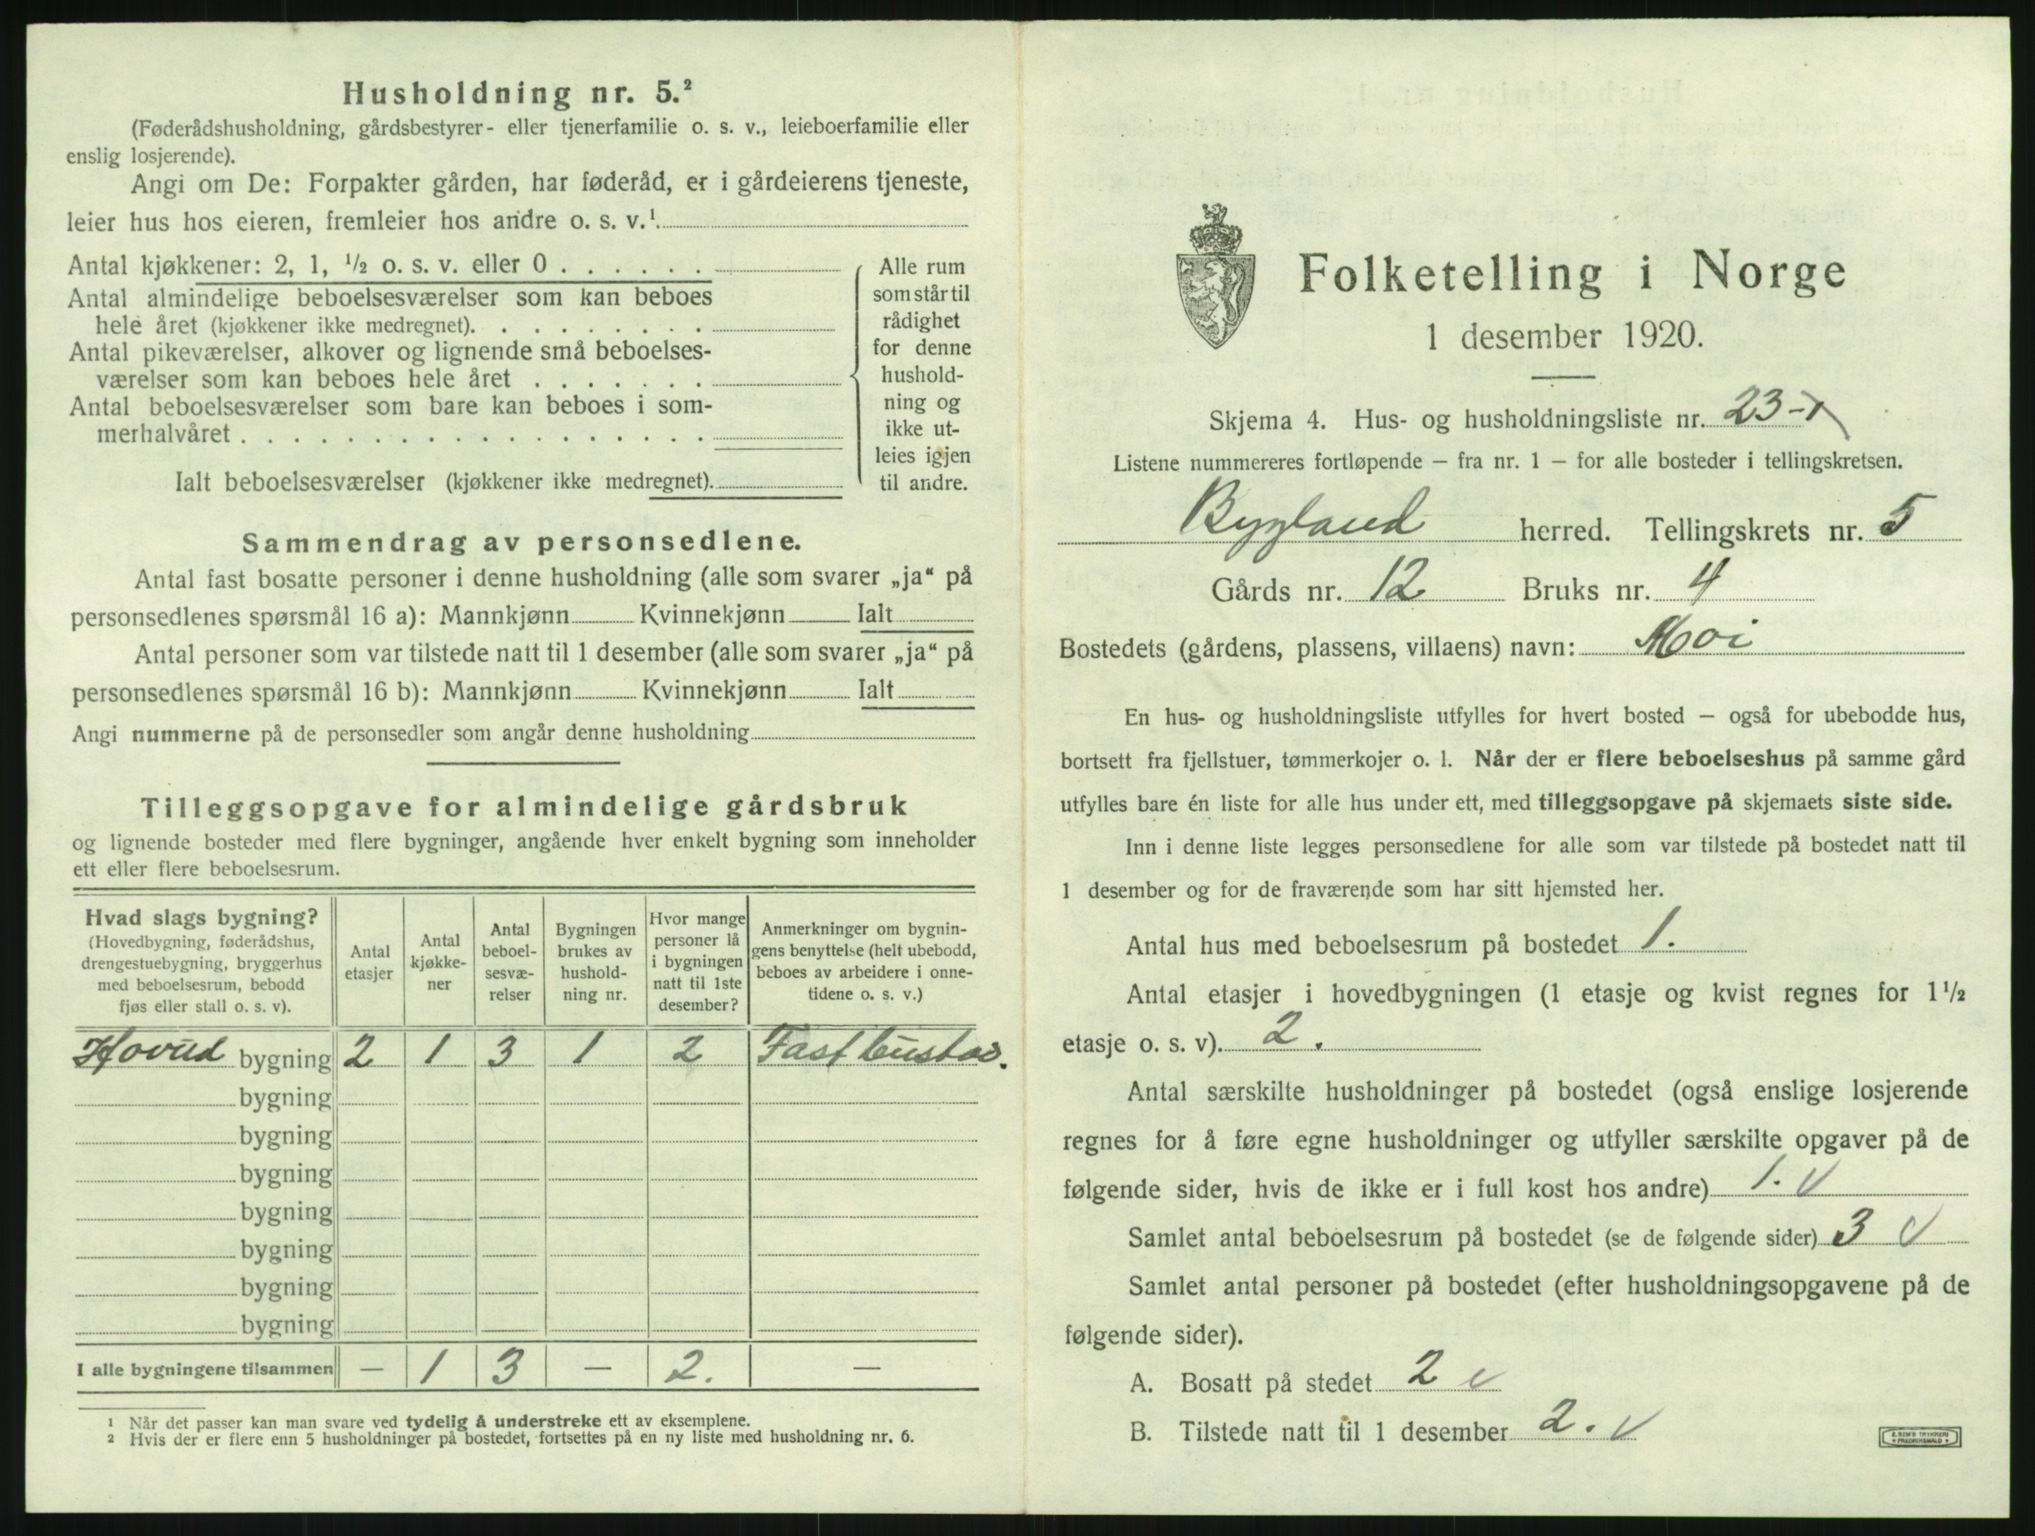 Husholdning nr. 5.²
(Føderådshusholdning, gårdsbestyrer- eller tjenerfamilie o. s. v., leieboerfamilie eller
enslig losjerende).
Angi om De: Forpakter gården, har føderåd, er i gårdeierens tjeneste,
leier hus hos eieren, fremleier hos andre o. s. v.¹
Antal kjøkkener: 2, 1, ½ o. s. v. eller 0 . . . . . .
Antal almindelige beboelsesværelser som kan beboes
hele året (kjøkkener ikke medregnet). . . . . . . . .
Antal pikeværelser, alkover og lignende små beboelses-
værelser som kan beboes hele året . . . . . . .
Antal beboelsesværelser som bare kan beboes i som-
merhalvåret . . . . . . . . . . . . . . . . . .
Ialt beboelsesværelser (kjøkkener ikke medregnet).
Alle rum
som står til
rådighet
for denne
hushold-
ning og
ikke ut-
leies igjen
til andre.
Sammendrag av personsedlene.
Antal fast bosatte personer i denne husholdning (alle som svarer „ja“ på
personsedlenes spørsmål 16 a): Mannkjønn Kvinnekjønn Ialt
Antal personer som var tilstede natt til 1 desember (alle som svarer „ja“ på
personsedlenes spørsmål 16 b): Mannkjønn Kvinnekjønn Ialt
Angi nummerne på de personsedler som angår denne husholdning
Tilleggsopgave for almindelige gårdsbruk
og lignende bosteder med flere bygninger, angående hver enkelt bygning som inneholder
ett eller flere beboelsesrum.
Hvad slags bygning?
(Hovedbygning, føderådshus,
drengestuebygning, bryggerhus
med beboelsesrum, bebodd
fjøs eller stall o. s. v).
Antal
etasjer
Antal
kjøkke-
ner
Antal
beboel-
sesvæ-
relser
Bygningen
brukes av
hushold-
ning nr.
Hvor mange
personer lå
i bygningen
natt til 1ste
desember?
Anmerkninger om bygnin-
gens benyttelse (helt ubebodd,
beboes av arbeidere i onne-
tidene o. s. v.)
Hovud bygning 2 1 3 1 2 Fast bustad.
bygning
bygning
bygning
bygning
bygning
bygning
bygning
I alle bygningene tilsammen — 1 3 — 2. —
¹ Når det passer kan man svare ved tydelig å understreke ett av eksemplene.
² Hvis der er flere enn 5 husholdninger på bostedet, fortsettes på en ny liste med husholdning nr. 6.
Folketelling i Norge
1 desember 1920.
Skjema 4. Hus- og husholdningsliste nr. 23-1
Listene nummereres fortløpende – fra nr. 1 – for alle bosteder i tellingskretsen.
Bygland herred. Tellingskrets nr. 5
Gårds nr. 12 Bruks nr. 4
Bostedets (gårdens, plassens, villaens) navn: Moi
En hus- og husholdningsliste utfylles for hvert bosted – også for ubebodde hus,
bortsett fra fjellstuer, tømmerkojer o. l. Når der er flere beboelseshus på samme gård
utfylles bare én liste for alle hus under ett, med tilleggsopgave på skjemaets siste side.
Inn i denne liste legges personsedlene for alle som var tilstede på bostedet natt til
1 desember og for de fraværende som har sitt hjemsted her.
Antal hus med beboelsesrum på bostedet 1.
Antal etasjer i hovedbygningen (1 etasje og kvist regnes for 1½
etasje o. s. v). 2.
Antal særskilte husholdninger på bostedet (også enslige losjerende
regnes for å føre egne husholdninger og utfyller særskilte opgaver på de
følgende sider, hvis de ikke er i full kost hos andre) 1. v
Samlet antal beboelsesrum på bostedet (se de følgende sider) 3 v
Samlet antal personer på bostedet (efter husholdningsopgavene på de
følgende sider).
A. Bosatt på stedet 2 v
B. Tilstede natt til 1 desember 2. v